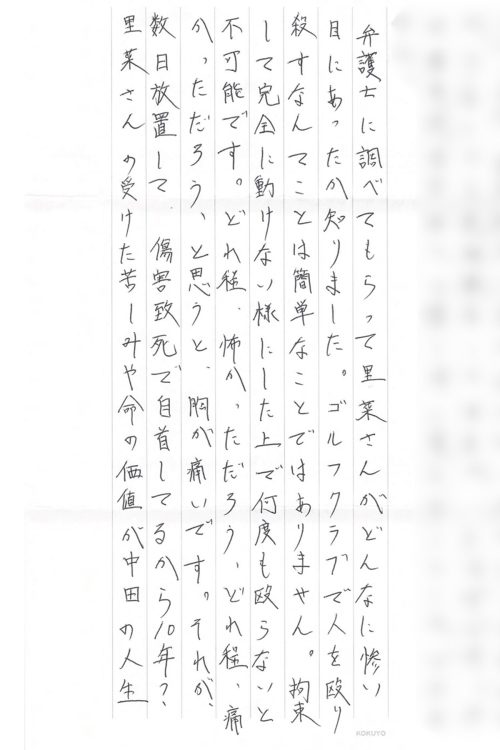 弁護士に調べてもらって里菜さんがどんなに惨い
目にあったか知りました。ゴルフクラブで人を殴り
殺すなんてことは簡単なことではありません。拘束
して完全に動けない様にした上で何度も殴らないと
不可能です。どれ程、怖かっただろう、どれ程、痛
かっただろう、と思うと、胸が痛いです。それが、
数日放置して 傷害致死で自首してるから10年？
里菜さんの受けた苦しみや命の価値が中田の人生
KOKUYO